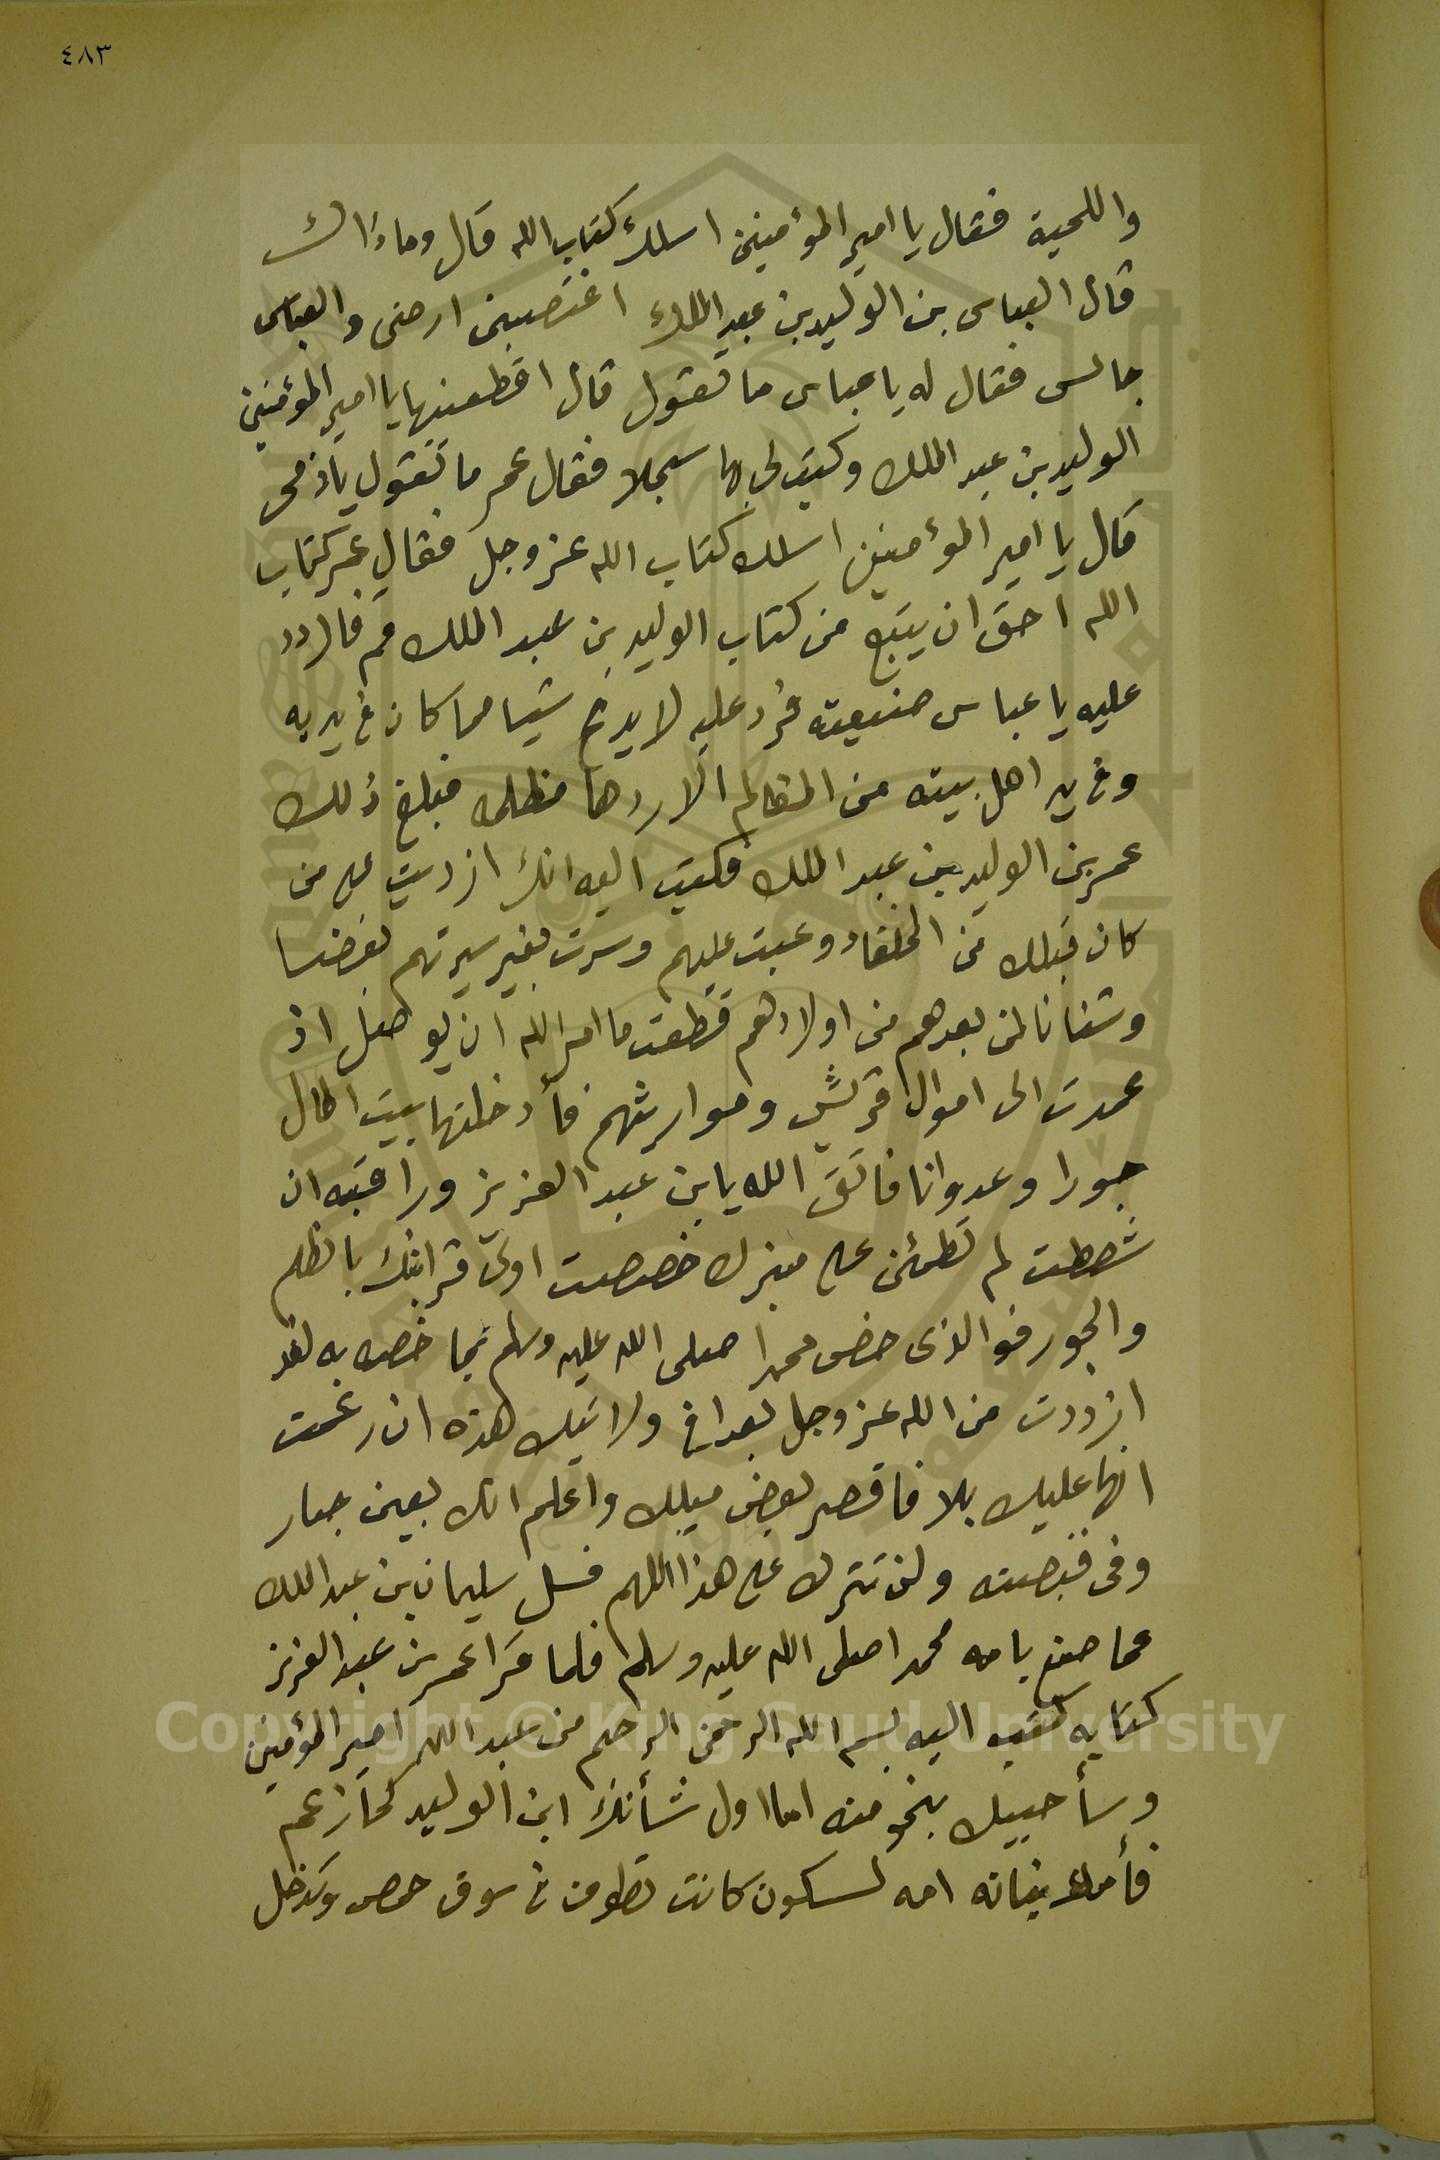 ٤٨٣
واللحية فقال يا امير المؤمنين اسلك كتاب الله قال وما ذاك
قال العباس بن الوليد بن عبد الملك اغتصبنى ارضى والعباس
جالس فقال له يا عباس ما تقول قال اقطعنيها يا امير المؤمنين
الوليد بن عبد الملك وكتب لى بها سجلا فقال عمر ما تقول يا ذمى
قال يا امير المؤمنين اسلك كتاب الله عز وجل فقال عمر كتاب
الله احق ان يتبع من كتاب الوليد بن عبد الملك قم فاردد
عليه يا عباس ضيعته فرد عليه لا يدع شيا مما كان فى يديه
وفى يد اهل بيته من المظالم الا ردها مظلمة فبلغ ذلك
عمر بن الوليد بن عبد الملك فكتب اليه انك ازريت على من
كان قبلك من الخلفاء وعبت عليهم وسرت بغير سيرتهم بغضا
وشنانا لمن بعدهم من اولادهم قطعت ما امر الله ان يوصل اذ
عمدت الى اموال قريش ومواريثهم فأدخلتها بيت المال
جورا وعدوانا فاتق الله يا بن عبد العزيز وراقبه ان
شططت لم تطمئن على منبرك خصصت اولى قرابتك بالظلم
والجور فوالذى خص محمدا صلى الله عليه وسلم بما خصه به لقد
ازددت من الله عز وجل بعدا فى ولايتك هذه ان زعمت
انها عليك بلا فاقصر بعض ميلك واعلم انك بعين جبار
وفى قبضته ولن تترك على هذا اللهم فسل سليمان بن عبد الملك
عما صنع بامة محمد صلى الله عليه وسلم فلما قرا عمر بن عبد العزيز
كتابه كتب اليه بسم الله الرحمن الرحيم من عبد الله امير المؤمنين
وسأجيبك بنحو منه اما اول شأنك ابن الوليد كما زعم
فأمك بنانه امه لسكون كانت تطوف فى سوق حمص وتدخل
Copyright © King Saud University